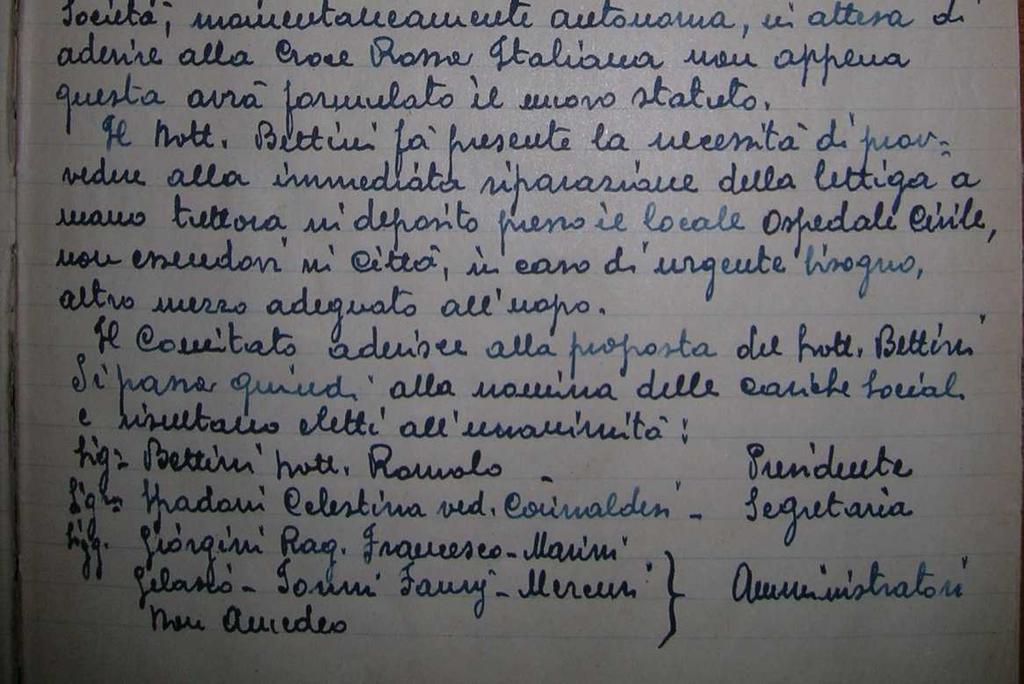 Società, momentaneamente autonoma, in attesa di
aderire alla Croce Rossa Italiana non appena
questa avrà formulato il nuovo statuto.
Il Dott. Bettini fà presente la necessità di prov=
vedere alla immediata riparazione della lettiga a
mano tuttora in deposito presso il locale Ospedale Civile,
non essendovi in Città, in caso di urgente bisogno,
altro mezzo adeguato all'uopo.
Il Comitato aderisce alla proposta del Dott. Bettini
Si passa quindi alla nomina delle cariche sociali
e risultano eletti all'unanimità:
Sig= Bettini Dott. Romolo - Presidente
Sig= Spadoni Celestina ved. Corinaldesi - Segretaria
Sigg. Giorgini Rag. Francesco - Marini
Gelasio - Tonini Fanny - Mercuri } Amministratori
Amedeo